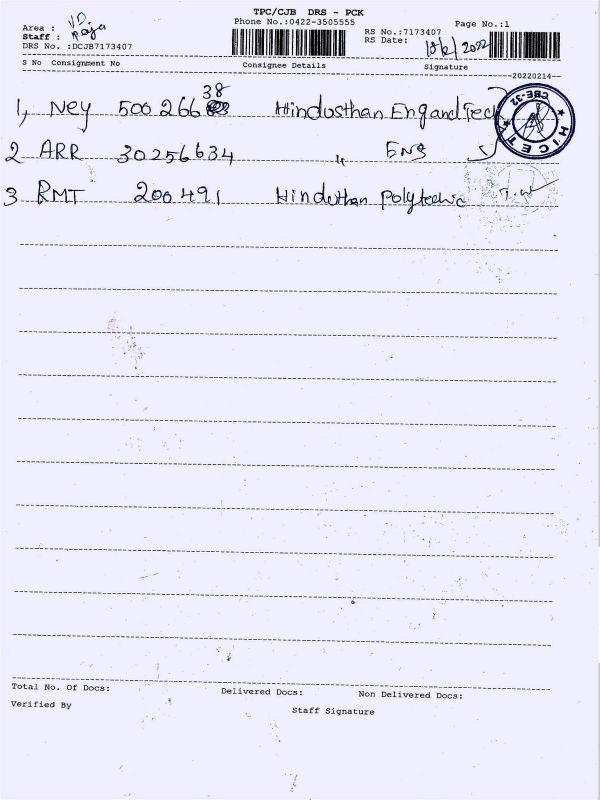 TPC/CJB DRS - PCK
Area : VD
Phone No.:0422-3505555
Page No.:1
Staff : Raja
RS No.:7173407
DRS No. :DCJB7173407
RS Date: 2022
S No Consignment No Consignee Details Signature
--20220214--
1, Ney 500 266 38 Hindusthan Eng and Tech
2 ARR 30256634 " ENG
3 RMT 200491 Hinduthan Polytechnic
HICET CBE-32
Total No. Of Docs: Delivered Docs: Non Delivered Docs:
Verified By Staff Signature